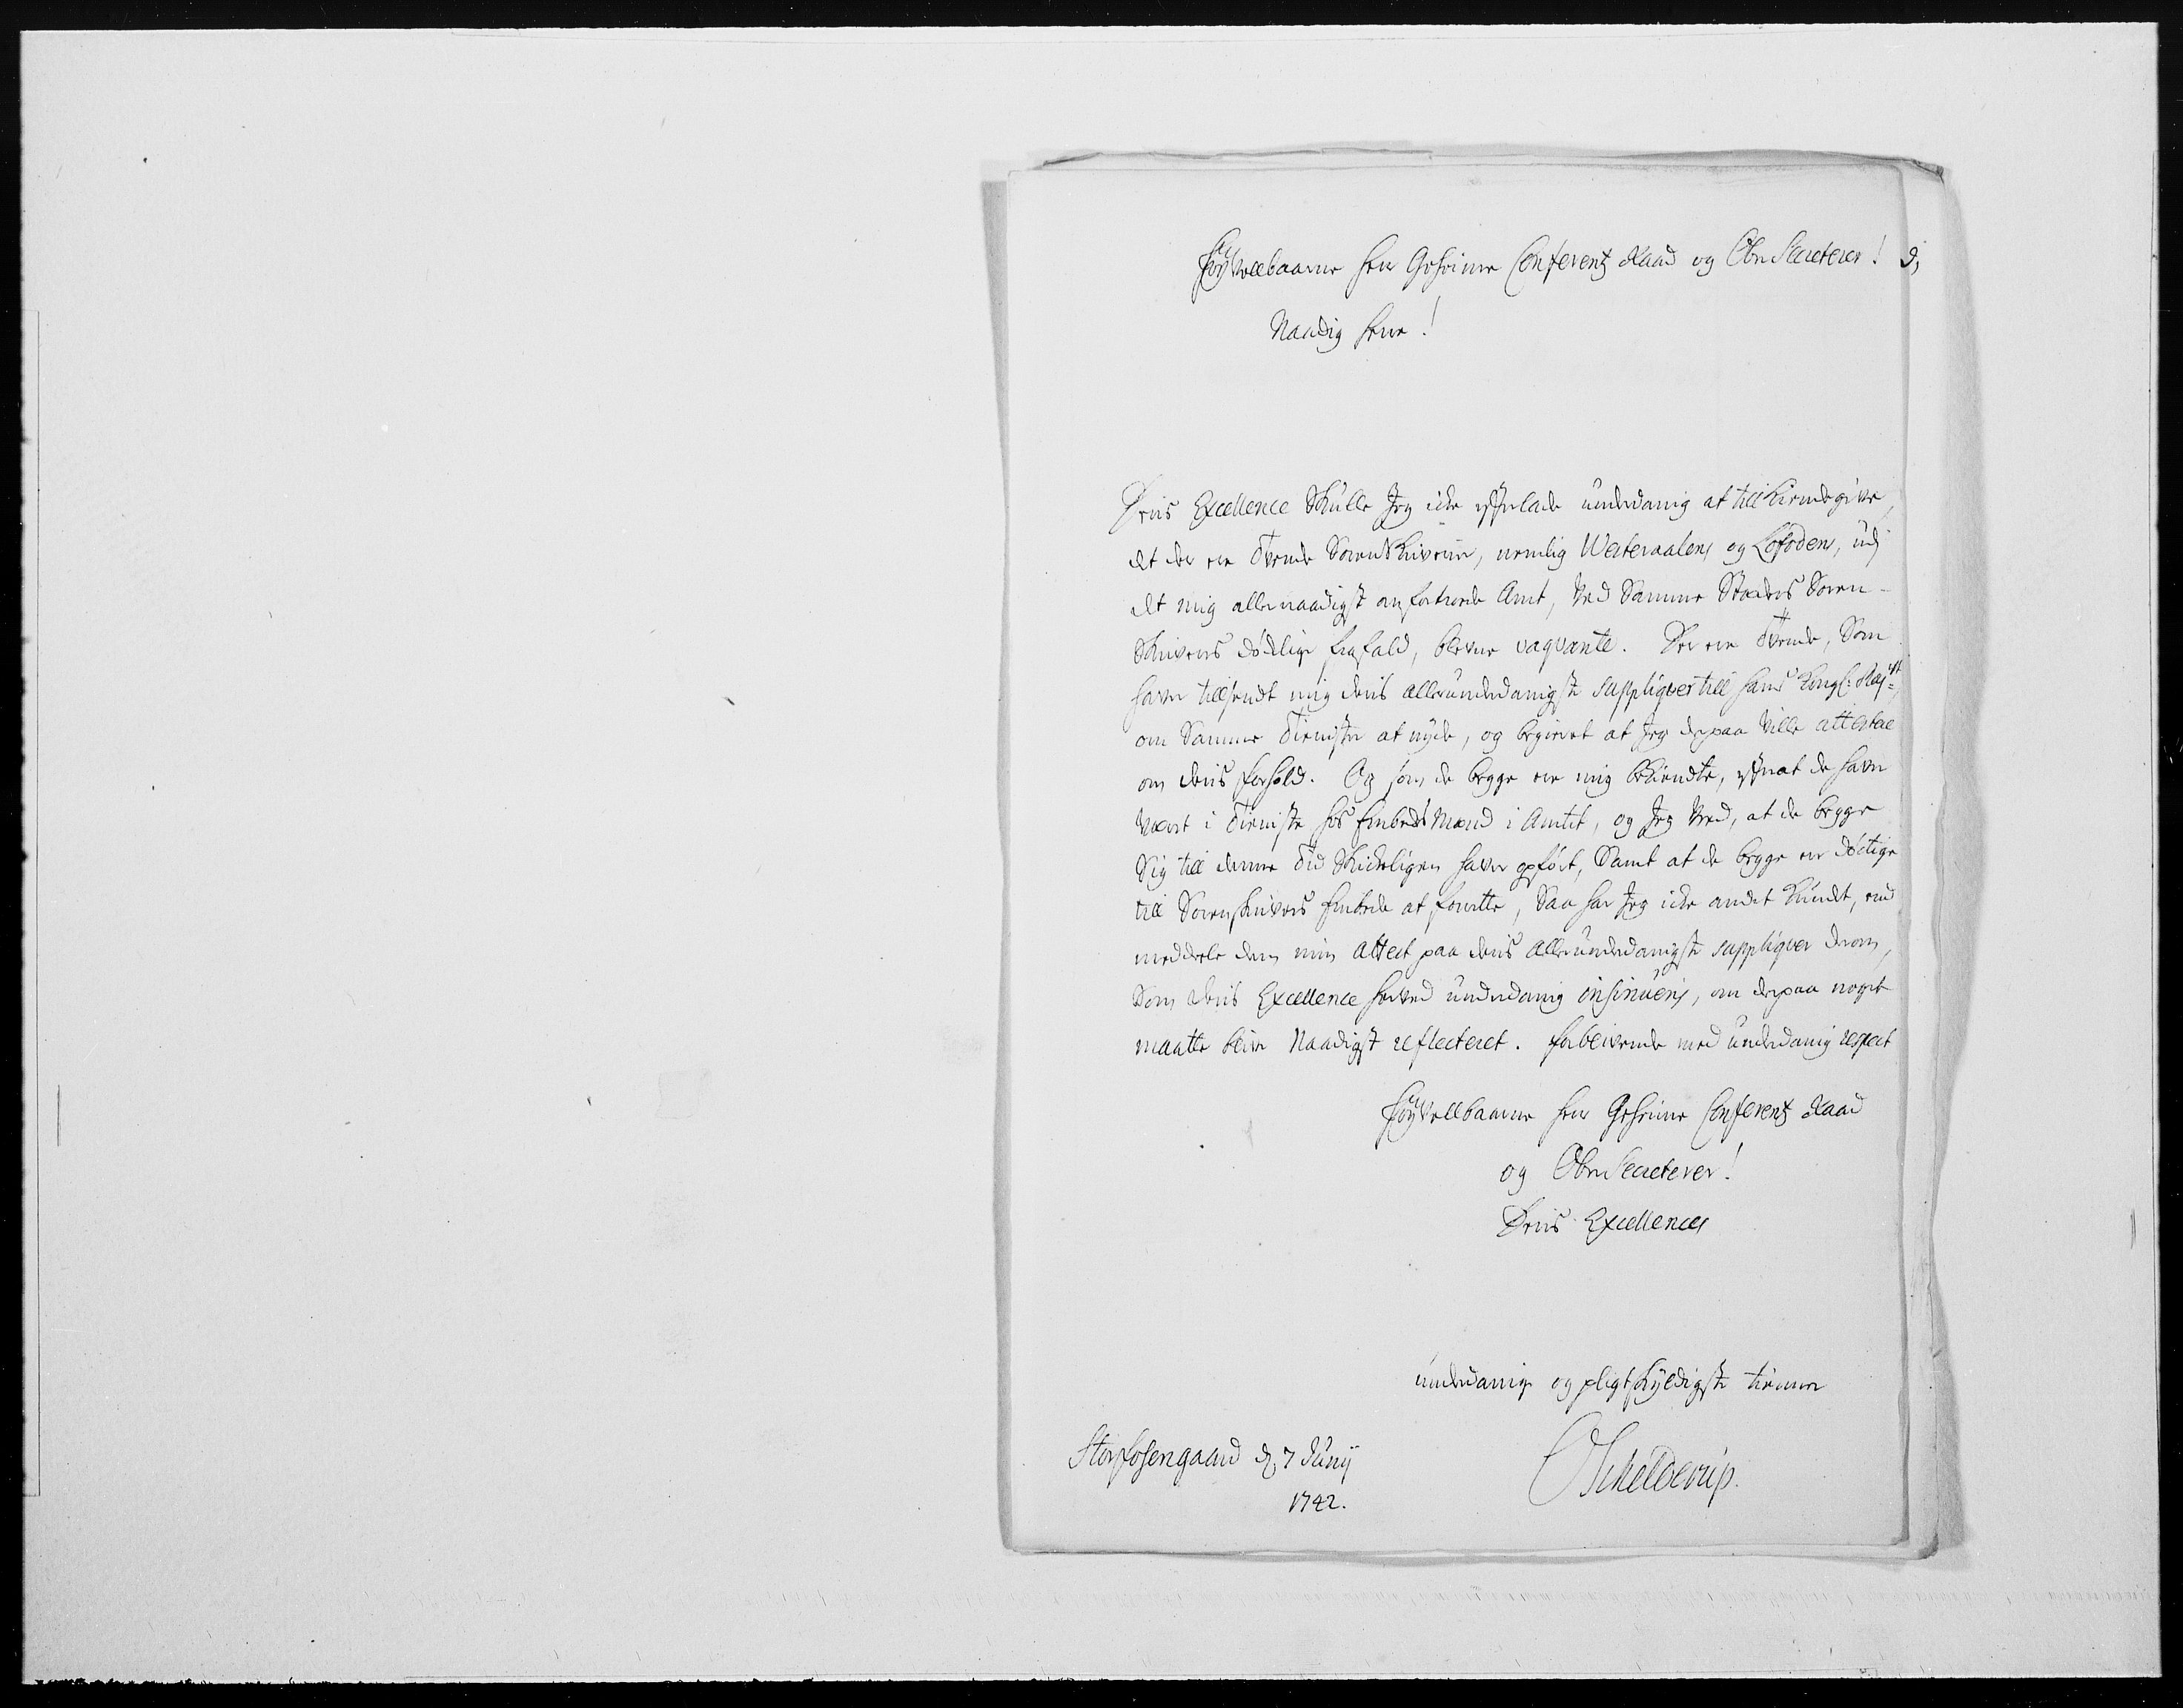 HøyVelbaarne Herr Geheime Conferentz Raad og Ober Secreterer!
Naadig Herre!
Deris Excellence Skulle Jeg icke efterlade underdanig at tillKiendegive,
at der ere Tvende SorenSkriverier, nemlig Westeraalens og Lofodens, udj
det mig allernaadigst anfortroede Amt, Ved Samme Stæders Soren-
Skrivers dödelige frafald, blevne vaqvante. Der ere Tvende, Som
haver tillsendt mig deris allerunderdanigste suppliqver till hans Kongl: Mayst:
om Samme Tieniste at nyde, og begieret at Jeg derpaa Ville attestere
om deris forhold. Og som de begge ere mig bekiendte, efterat de haver
været i Tieniste hos Embeds Mænd i Amtet, og Jeg Veed, at de begge
Sig till denne Tid Skickeligen haver opfört, Samt at de begge ere döctige
till Sorenskrivers Embede at forrette, Saa har Jeg icke andet Kundt, end
meddeele dem min Attest paa deris Allerunderdanigste suppliqver derom,
Som deris Excellence herved underdanig insinueris, om derpaa noget
maatte blive Naadigst reflecteret. forblivende med underdanig respect
HøyVellbaarne Herr Geheime Conferentz Raad
og Ober Secreterer!
Deris Excellences
underdanige og pligtskyldigste tienner
Storfosengaard d. 7 Junij
1742.
OSchelderup.